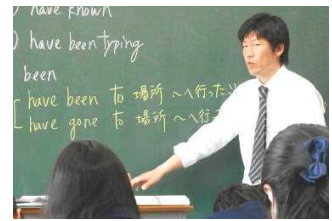 ) have known
) have been typing
been
have been to 場所 ~へ行った
have gone to 場所 ~へ行